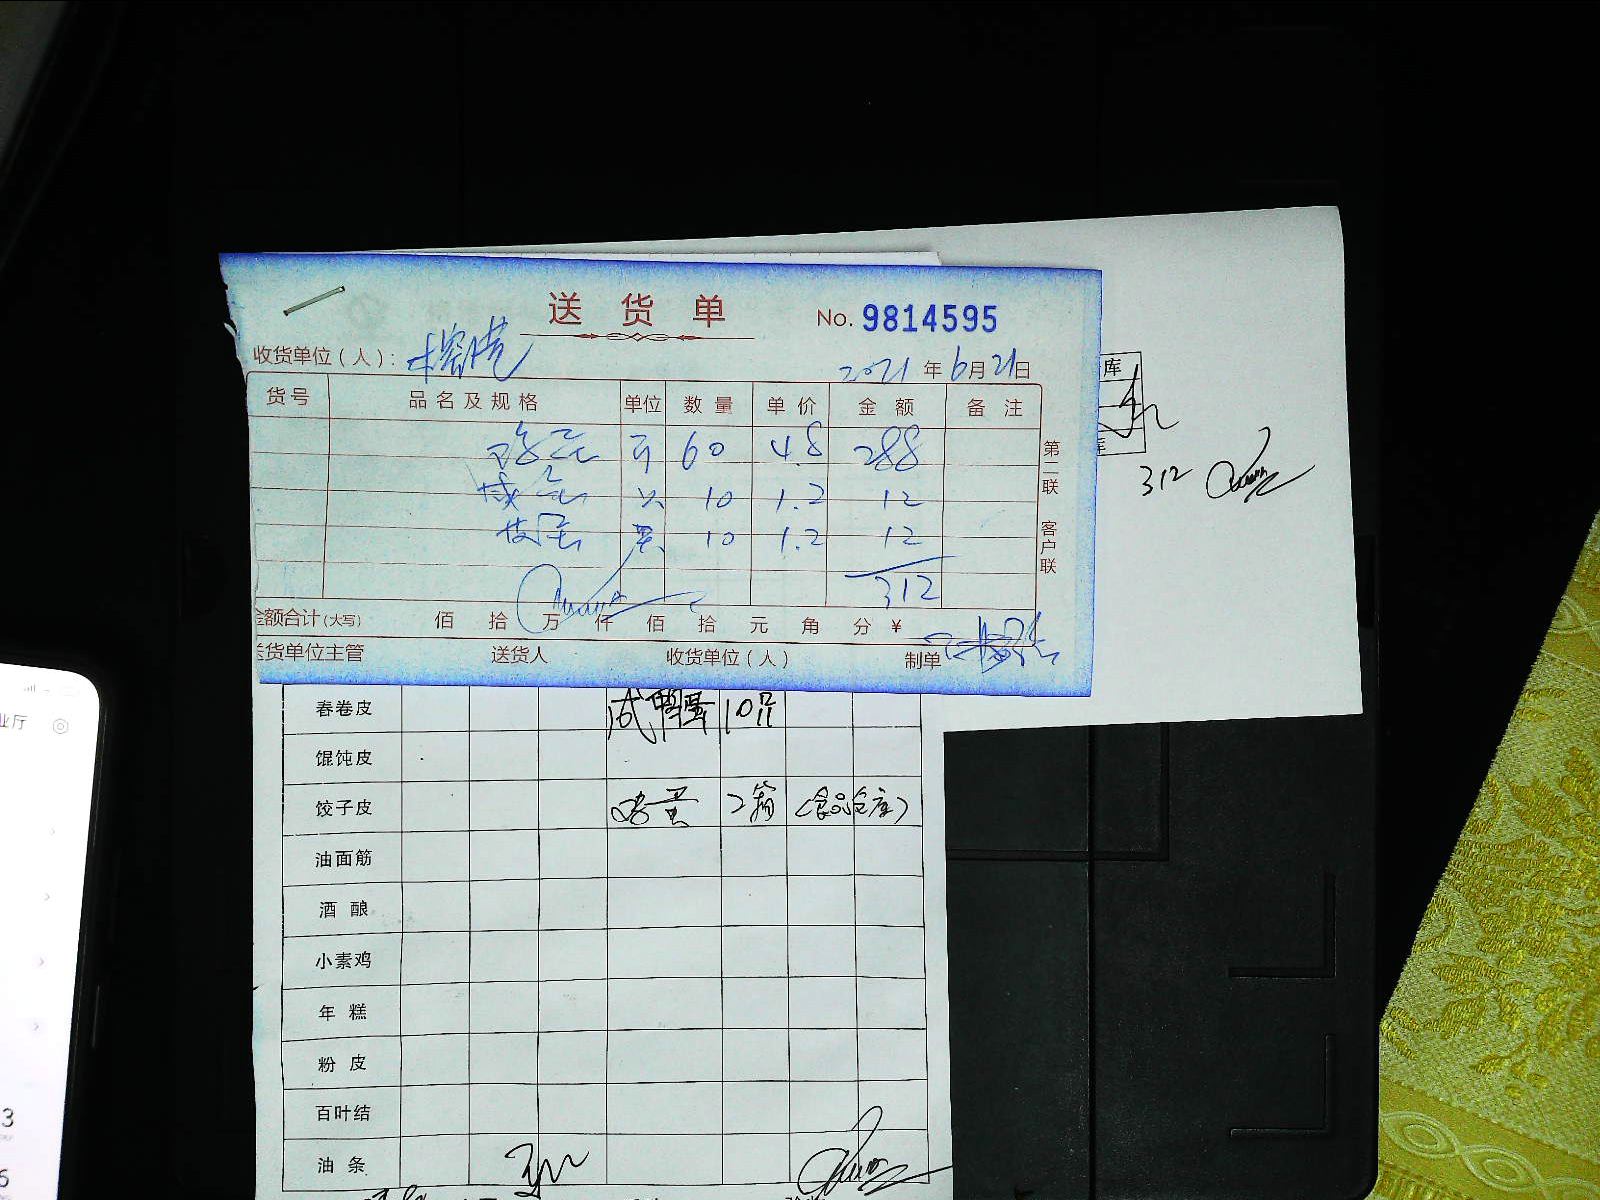 送货单
No. 9814595
收货单位(人):
2021 年 6 月 21 日
货号 品名及规格 单位 数量 单价 金额 备注
鸡蛋 斤 60 4.8 288
咸蛋 只 10 1.2 12
皮蛋 只 10 1.2 12
312
金额合计(大写) 佰 拾 万 仟 佰 拾 元 角 分 ¥
送货单位主管 送货人 收货单位(人) 制单
第二联 客户联
库
库
312
春卷皮 咸鸭蛋 10只
馄饨皮
饺子皮 鸡蛋 2箱 (食品仓库)
油面筋
酒酿
小素鸡
年糕
粉皮
百叶结
油条
业厅
3
5